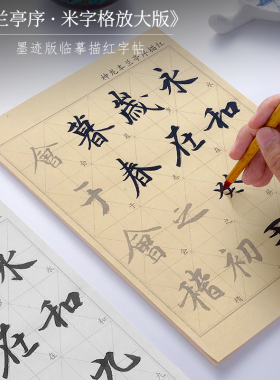 兰亭序·米字格放大版》
墨迹版临摹描红字帖
神龙本兰亭序描红
永和
歲在癸
暮春初
會于會稽
永和九
在